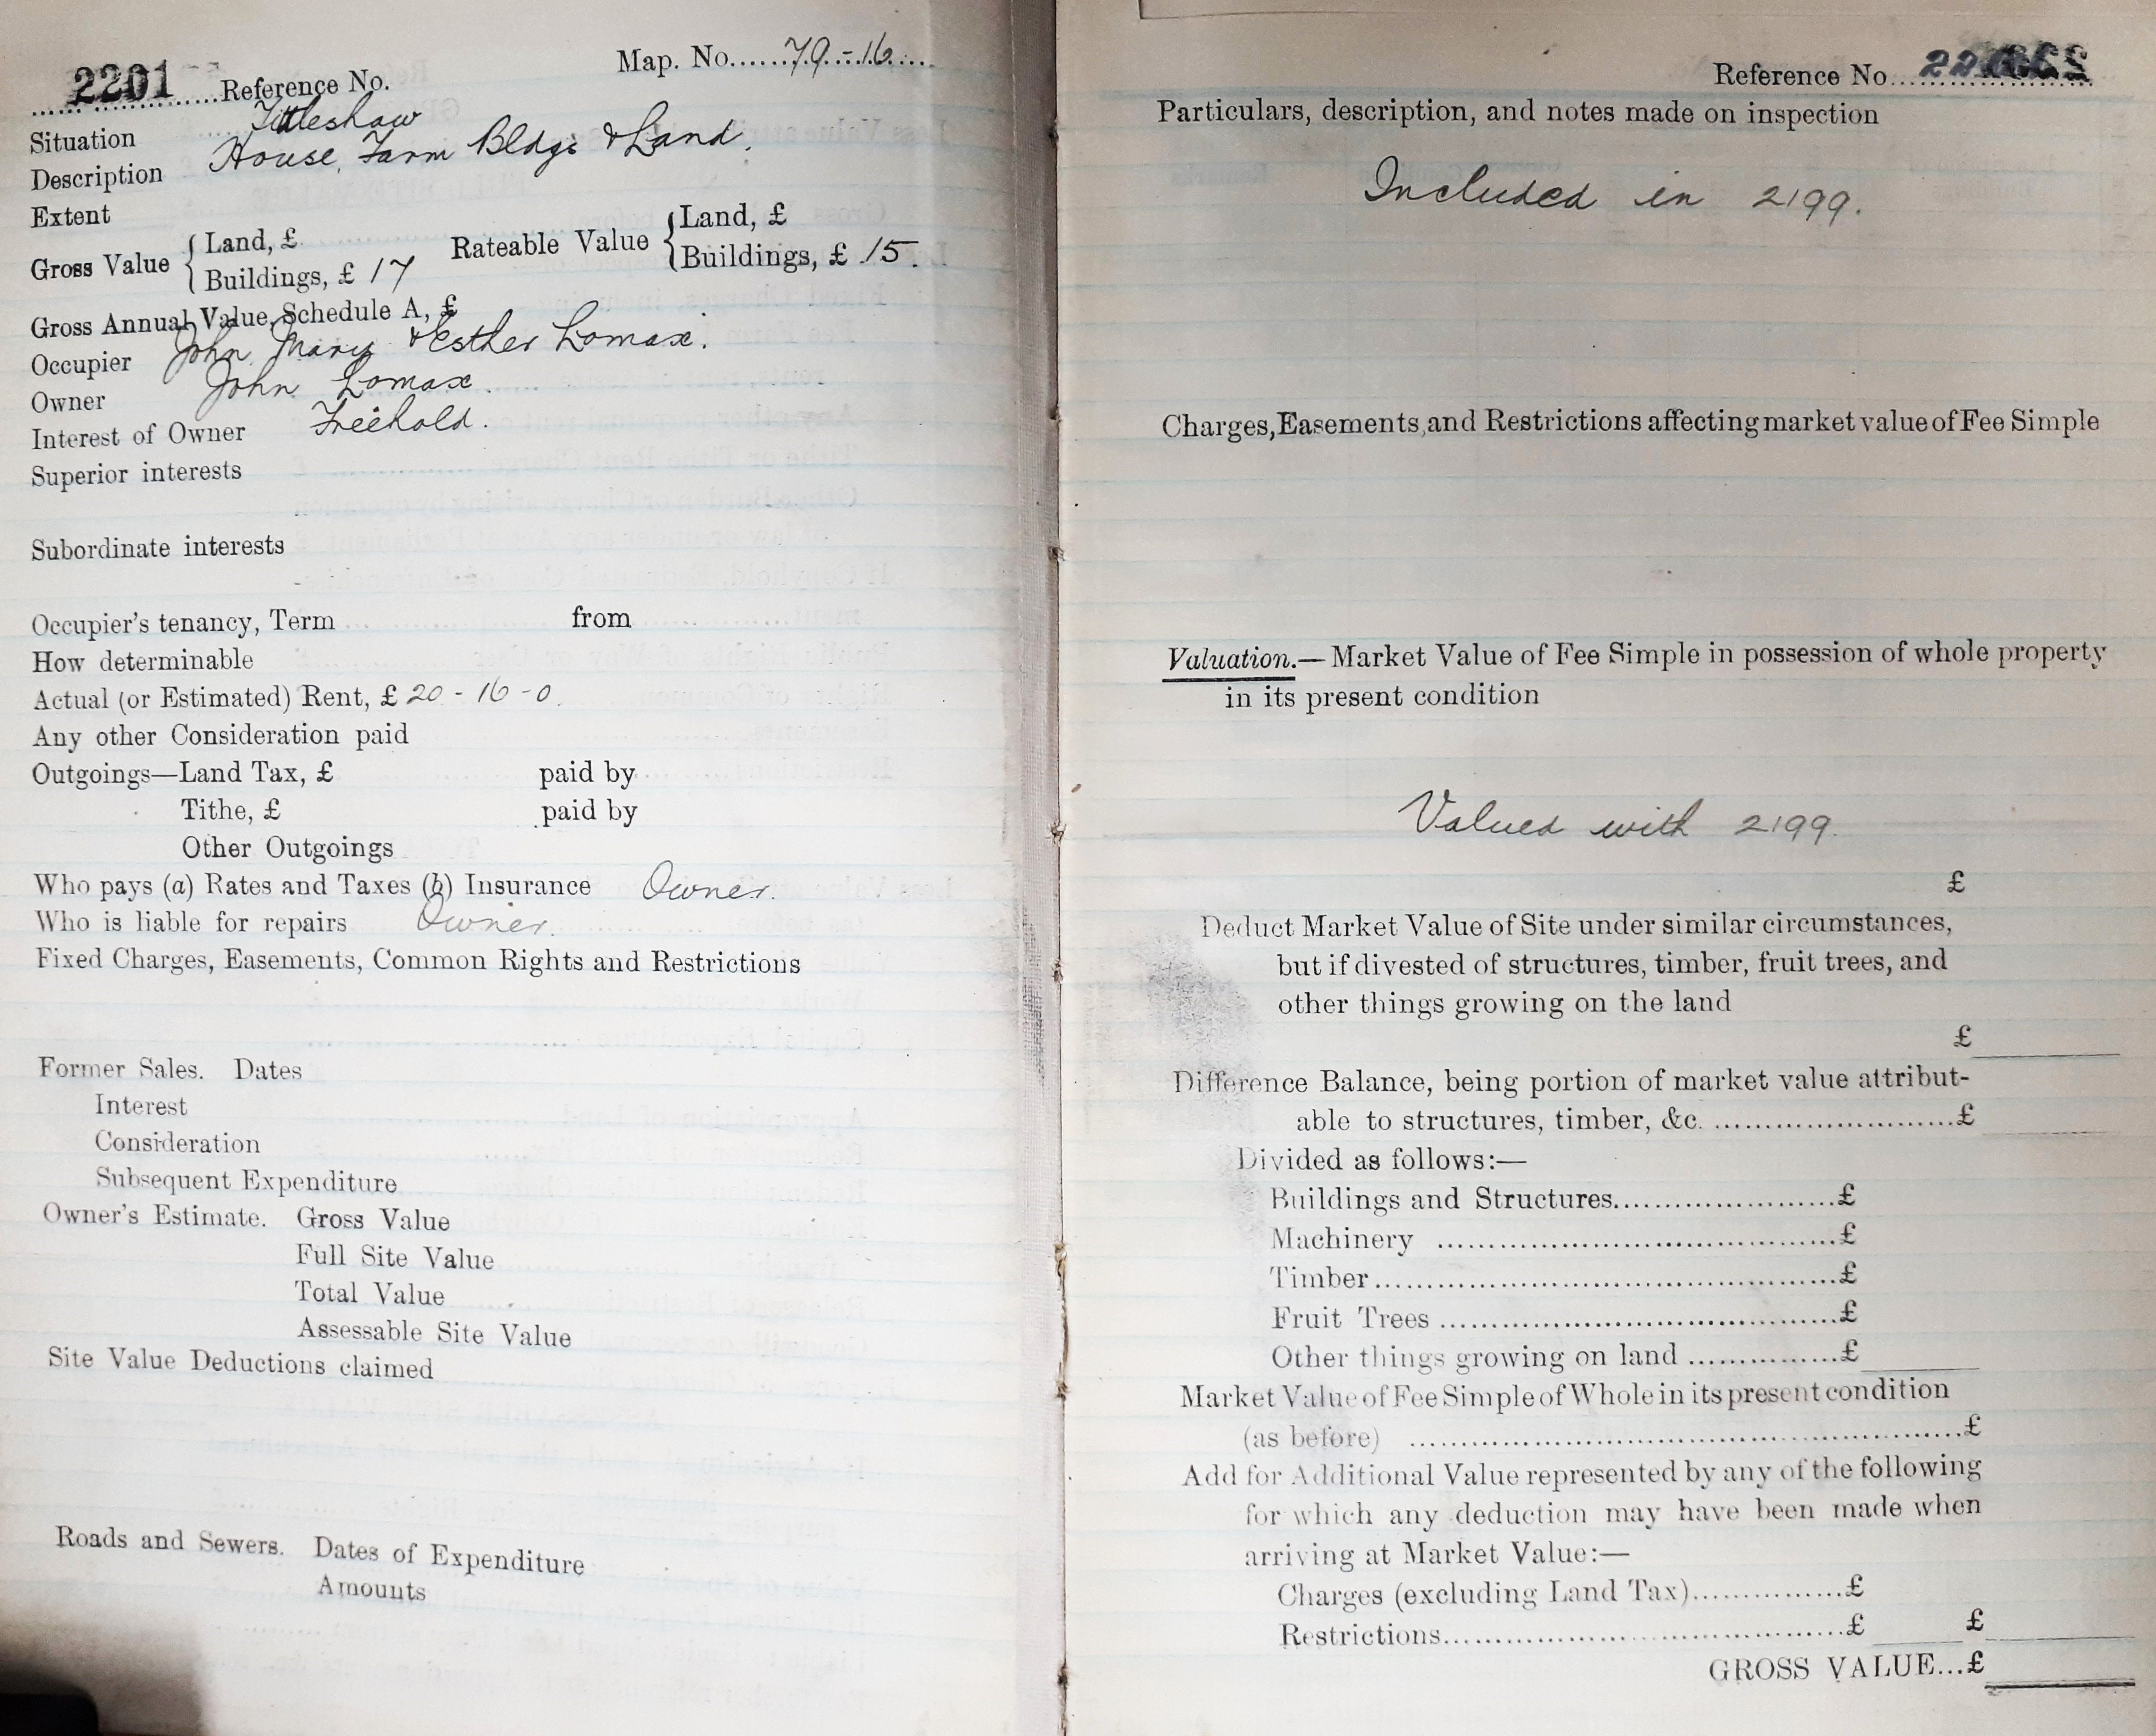 2201 Reference No. Map. No. 79-16
Situation Tittleshaw
Description House, Farm Bldgs & Land.
Extent
Gross Value { Land, £ Rateable Value { Land, £
Buildings, £ 17 Buildings, £ 15.
Gross Annual Value, Schedule A, £
Occupier John, Mary & Esther Lomax.
Owner John Lomax.
Interest of Owner Freehold.
Superior interests
Subordinate interests
Occupier's tenancy, Term from
How determinable
Actual (or Estimated) Rent, £ 20 - 16 - 0.
Any other Consideration paid
Outgoings—Land Tax, £ paid by
Tithe, £ paid by
Other Outgoings
Who pays (a) Rates and Taxes (b) Insurance Owner.
Who is liable for repairs Owner.
Fixed Charges, Easements, Common Rights and Restrictions
Former Sales. Dates
Interest
Consideration
Subsequent Expenditure
Owner's Estimate. Gross Value
Full Site Value
Total Value
Assessable Site Value
Site Value Deductions claimed
Roads and Sewers. Dates of Expenditure
Amounts
Reference No
Particulars, description, and notes made on inspection
Included in 2199.
Charges, Easements, and Restrictions affecting market value of Fee Simple
Valuation.—Market Value of Fee Simple in possession of whole property
in its present condition
Valued with 2199.
£
Deduct Market Value of Site under similar circumstances,
but if divested of structures, timber, fruit trees, and
other things growing on the land
£
Difference Balance, being portion of market value attribut-
able to structures, timber, &c. ........................£
Divided as follows:—
Buildings and Structures......................£
Machinery ......................................£
Timber..............................................£
Fruit Trees ........................................£
Other things growing on land ...............£
Market Value of Fee Simple of Whole in its present condition
(as before) ......................................................£
Add for Additional Value represented by any of the following
for which any deduction may have been made when
arriving at Market Value:—
Charges (excluding Land Tax)...............£
Restrictions.......................................£ £
GROSS VALUE...£